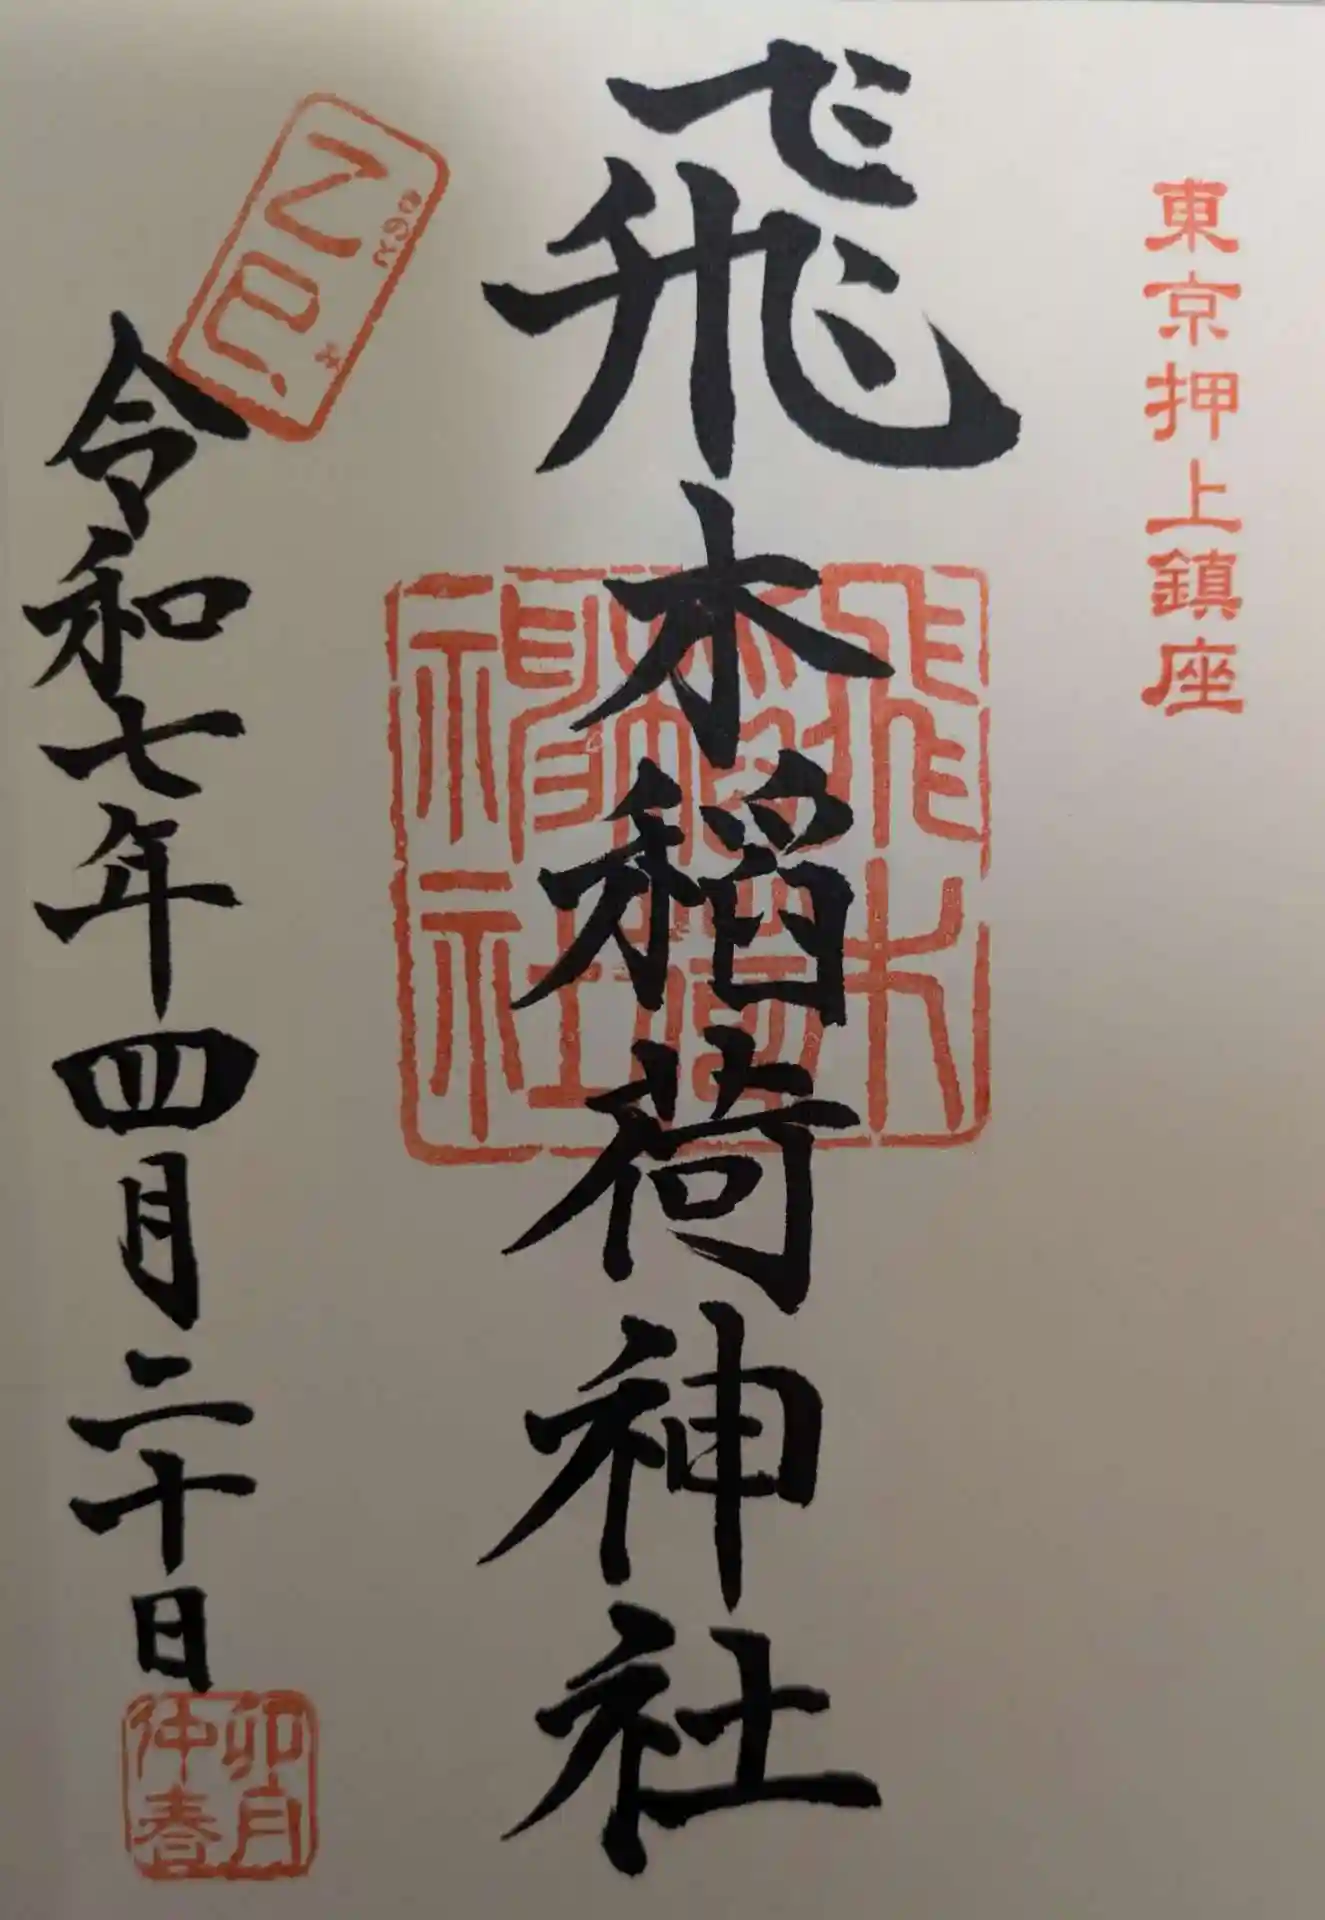 東京押上鎮座
飛木稲荷神社
飛木
稲荷
神社
乙巳
きのと
み
令和七年四月二十日
卯月
仲春